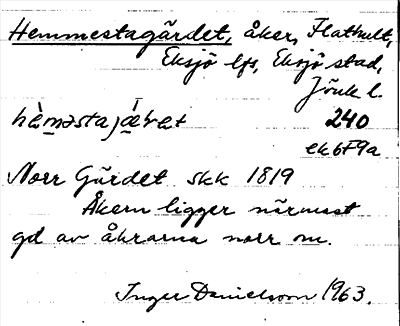 Hemmestagärdet, åker, Flathult,
Eksjö lfs, Eksjö stad,
Jönk l.
hèmǝstajǽret 240
ek6F9a
Norr Gärdet skk 1819
Åkern ligger närmast
gd av åkrarna norr om.
Inger Danielsson 1963.